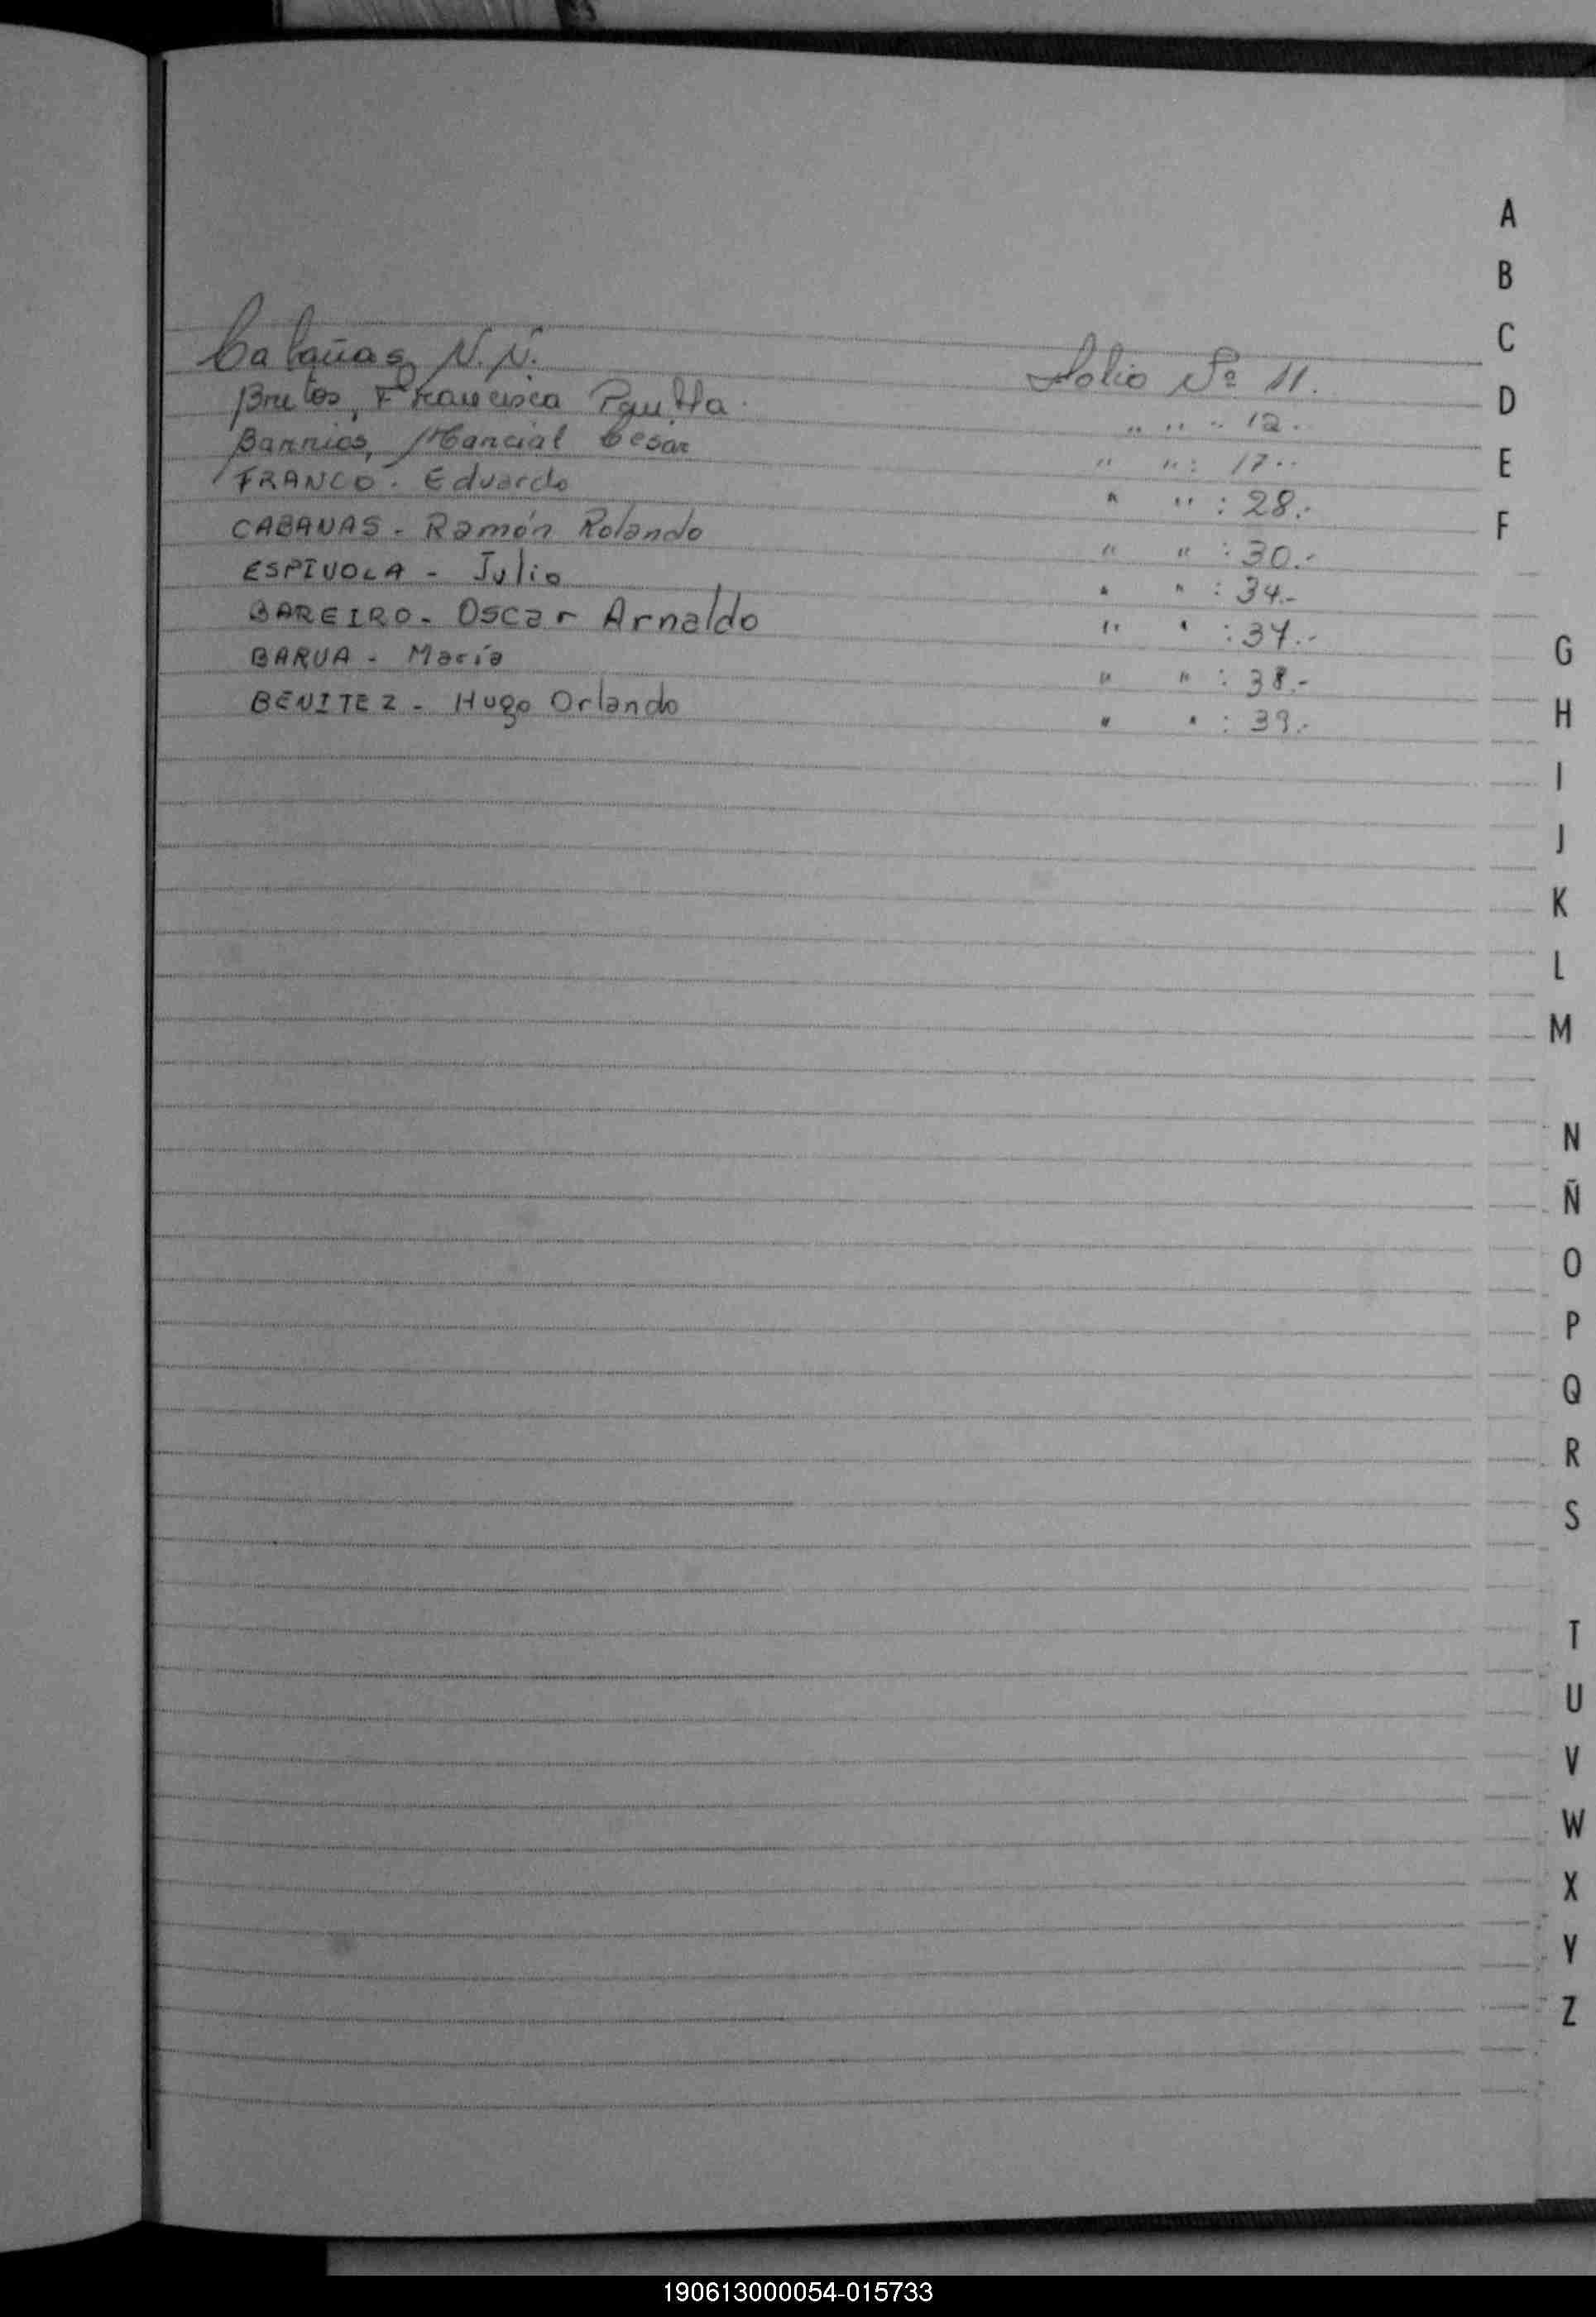 Cabañas, N.N. Folio Nº 11.
Britos, Francisca Paulta. " " " 12.
Barrios, Marcial Cesar " " : 17..
FRANCO. Eduardo " " : 28.-
CABANAS - Ramón Rolando " " : 30.-
ESPINOLA - Julio " " : 34.-
BAREIRO - Oscar Arnaldo " " : 37.-
BARUA - María " " : 38.-
BENITEZ - Hugo Orlando " " : 39.-
A
B
C
D
E
F
G
H
I
J
K
L
M
N
Ñ
O
P
Q
R
S
T
U
V
W
X
Y
Z
190613000054-015733